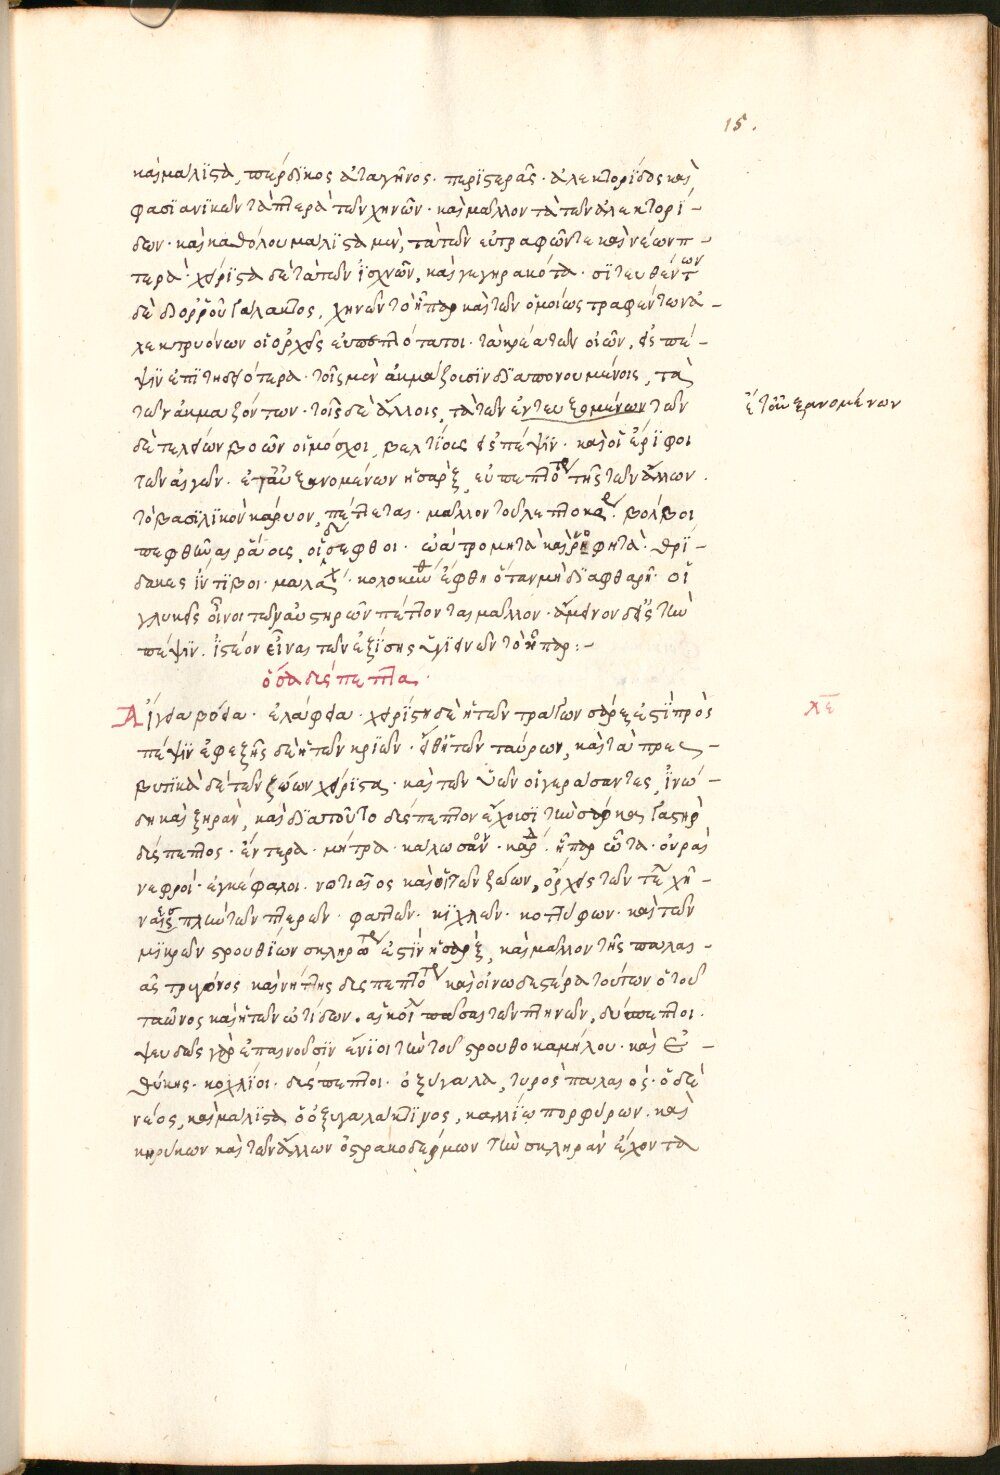 15.
καὶ μάλιστα, πέρδικος ἀταγῆνος· περιστερᾶς· ἀλεκτορίδος καὶ
φασϊανικῶν τὰ πτερὰ τῶν χηνῶν· καὶ μᾶλλον τὰ τῶν ἀλεκτορί-
δων· καὶ καθόλου μάλιστα μὲν, τὰ τῶν εὐτραφῶν τε καὶ νέων π-
τερά· χείριστα δὲ τὰ τῶν ἰσχνῶν, καὶ γεγηρακότα· σιτευθέντων
δὲ δι ὀρροῦ γάλακτος, χηνῶν τὸ ἧπαρ καὶ τῶν ὁμοίως τραφέντων ἀ-
λεκτρυόνων οἱ ὄρχεις εὐπεπτότατοι· τὰ κρέα τῶν οἰῶν, εἰς πέ-
ψιν ἐπιτηδειότερα· τοῖς μὲν ἀκμάζουσιν διαπονουμένοις, τὰ
τῶν ἀκμαζόντων· τοῖς δὲ ἄλλοις, τὰ τῶν ἐντευξομένων τῶν
ἔτ αὐξανομένων
δὲ τελείων βοῶν οἱ μόσχοι, βελτίους εἰς πέψιν· καὶ οἱ ἔριφοι
τῶν αἰγῶν· ἔτ αὐξανομένων ἡ σάρξ, εὐπεπτοτέρα τῆς τῶν ἄλλων·
τὸ βασιλικὸν κάρυον, πέττεται μᾶλλον τοῦ λεπτοκαρύου· βολβοὶ
πεφθῶσι ῥᾴους, οἱ δίσεφθοι· ὠὰ τρομητὰ καὶ ῥοφητά· θρί-
δακες ἴντιβοι· μαλάχη· κολοκύνθη ἐφθὴ ὅταν μὴ διαφθαρῇ· οἱ
γλυκεῖς οἶνοι τῶν αὐστηρῶν πέττονται μᾶλλον· ἄμεινον δ εἰς τὴν
πέψιν· ἰστέον εἶναι τῶν ἐξ ἴσης ὑγιεινῶν τὸ ἧπαρ:-
ὅσα δύσπεπτα·
λε
Αἴγεια βόεια· ἐλάφεια· χείρων δὲ ἡ τῶν τράγων σάρξ ἐστὶ πρὸς
πέψιν ἐφεξῆς δὲ ἡ τῶν κριῶν· εἶθ ἡ τῶν ταύρων, καὶ τὰ πρεσ-
βυτικὰ δὲ τῶν ζώων χείριστα· καὶ τῶν ὑῶν οἱ γεράσαντες, ἰνώ-
δη καὶ ξηρὰν, καὶ διὰ τοῦτο δύσπεπτον ἔχουσι τὴν σάρκα, γαστὴρ
δύσπεπτος· ἔντερα· μήτρα· ἧπαρ ὦτα· οὐραὶ
νεφροί· ἐγκέφαλοι· νωτιαῖος καὶ οἱ τῶν ζώων, ὄρχεις τῶν
πλὴν τῶν πτερῶν· φαττῶν· κιχλῶν· κοττύφων· καὶ τῶν
μικρῶν στρουθίων σκληροτέρα ἐστὶν ἡ σάρξ, καὶ μᾶλλον τῆς παλαι-
ᾶς τρυγόνος καὶ νήττης δυσπεπτοτέρα καὶ ἰνωδεστέρα τούτων ἡ τοῦ
ταῶνος καὶ ἡ τῶν ὠτίδων· αἱ κοιλίαι πᾶσαι τῶν πτηνῶν, δύσπεπτοι·
ψευδῶς γὰρ ἐπαινοῦσιν ἔνιοι τὴν τοῦ στρουθοκαμήλου· καὶ
θύκης· κοχλίοι· δύσπεπτοι· ὀξύγαλα, τυρὸς παλαιός· ὁ δὲ
νέος, καὶ μάλιστα ὁ ὀξυγαλάκτινος, καλλίω πορφύρων· καὶ
κηρύκων καὶ τῶν ἄλλων ὀστρακοδέρμων τῶν σκληρὰν ἐχόντα